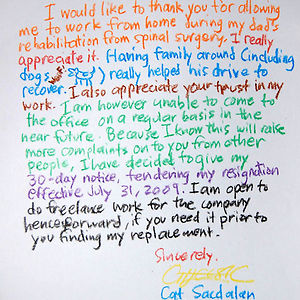 I would like to thank you for allowing
me to work from home during my dad's
rehabilitation from spinal surgery. I really
appreciate it. Having family around (including
dogs woof! ) really helped his drive to
recover. I also appreciate your trust in my
work. I am however unable to come to
the office on a regular basis in the
near future. Because I know this will raise
more complaints on to you from other
people, I have decided to give my
30-day notice, tendering my resignation
effective July 31, 2009. I am open to
do freelance work for the company
henceforward, if you need it prior to
you finding my replacement.
Sincerely,
Cat Sacdalan